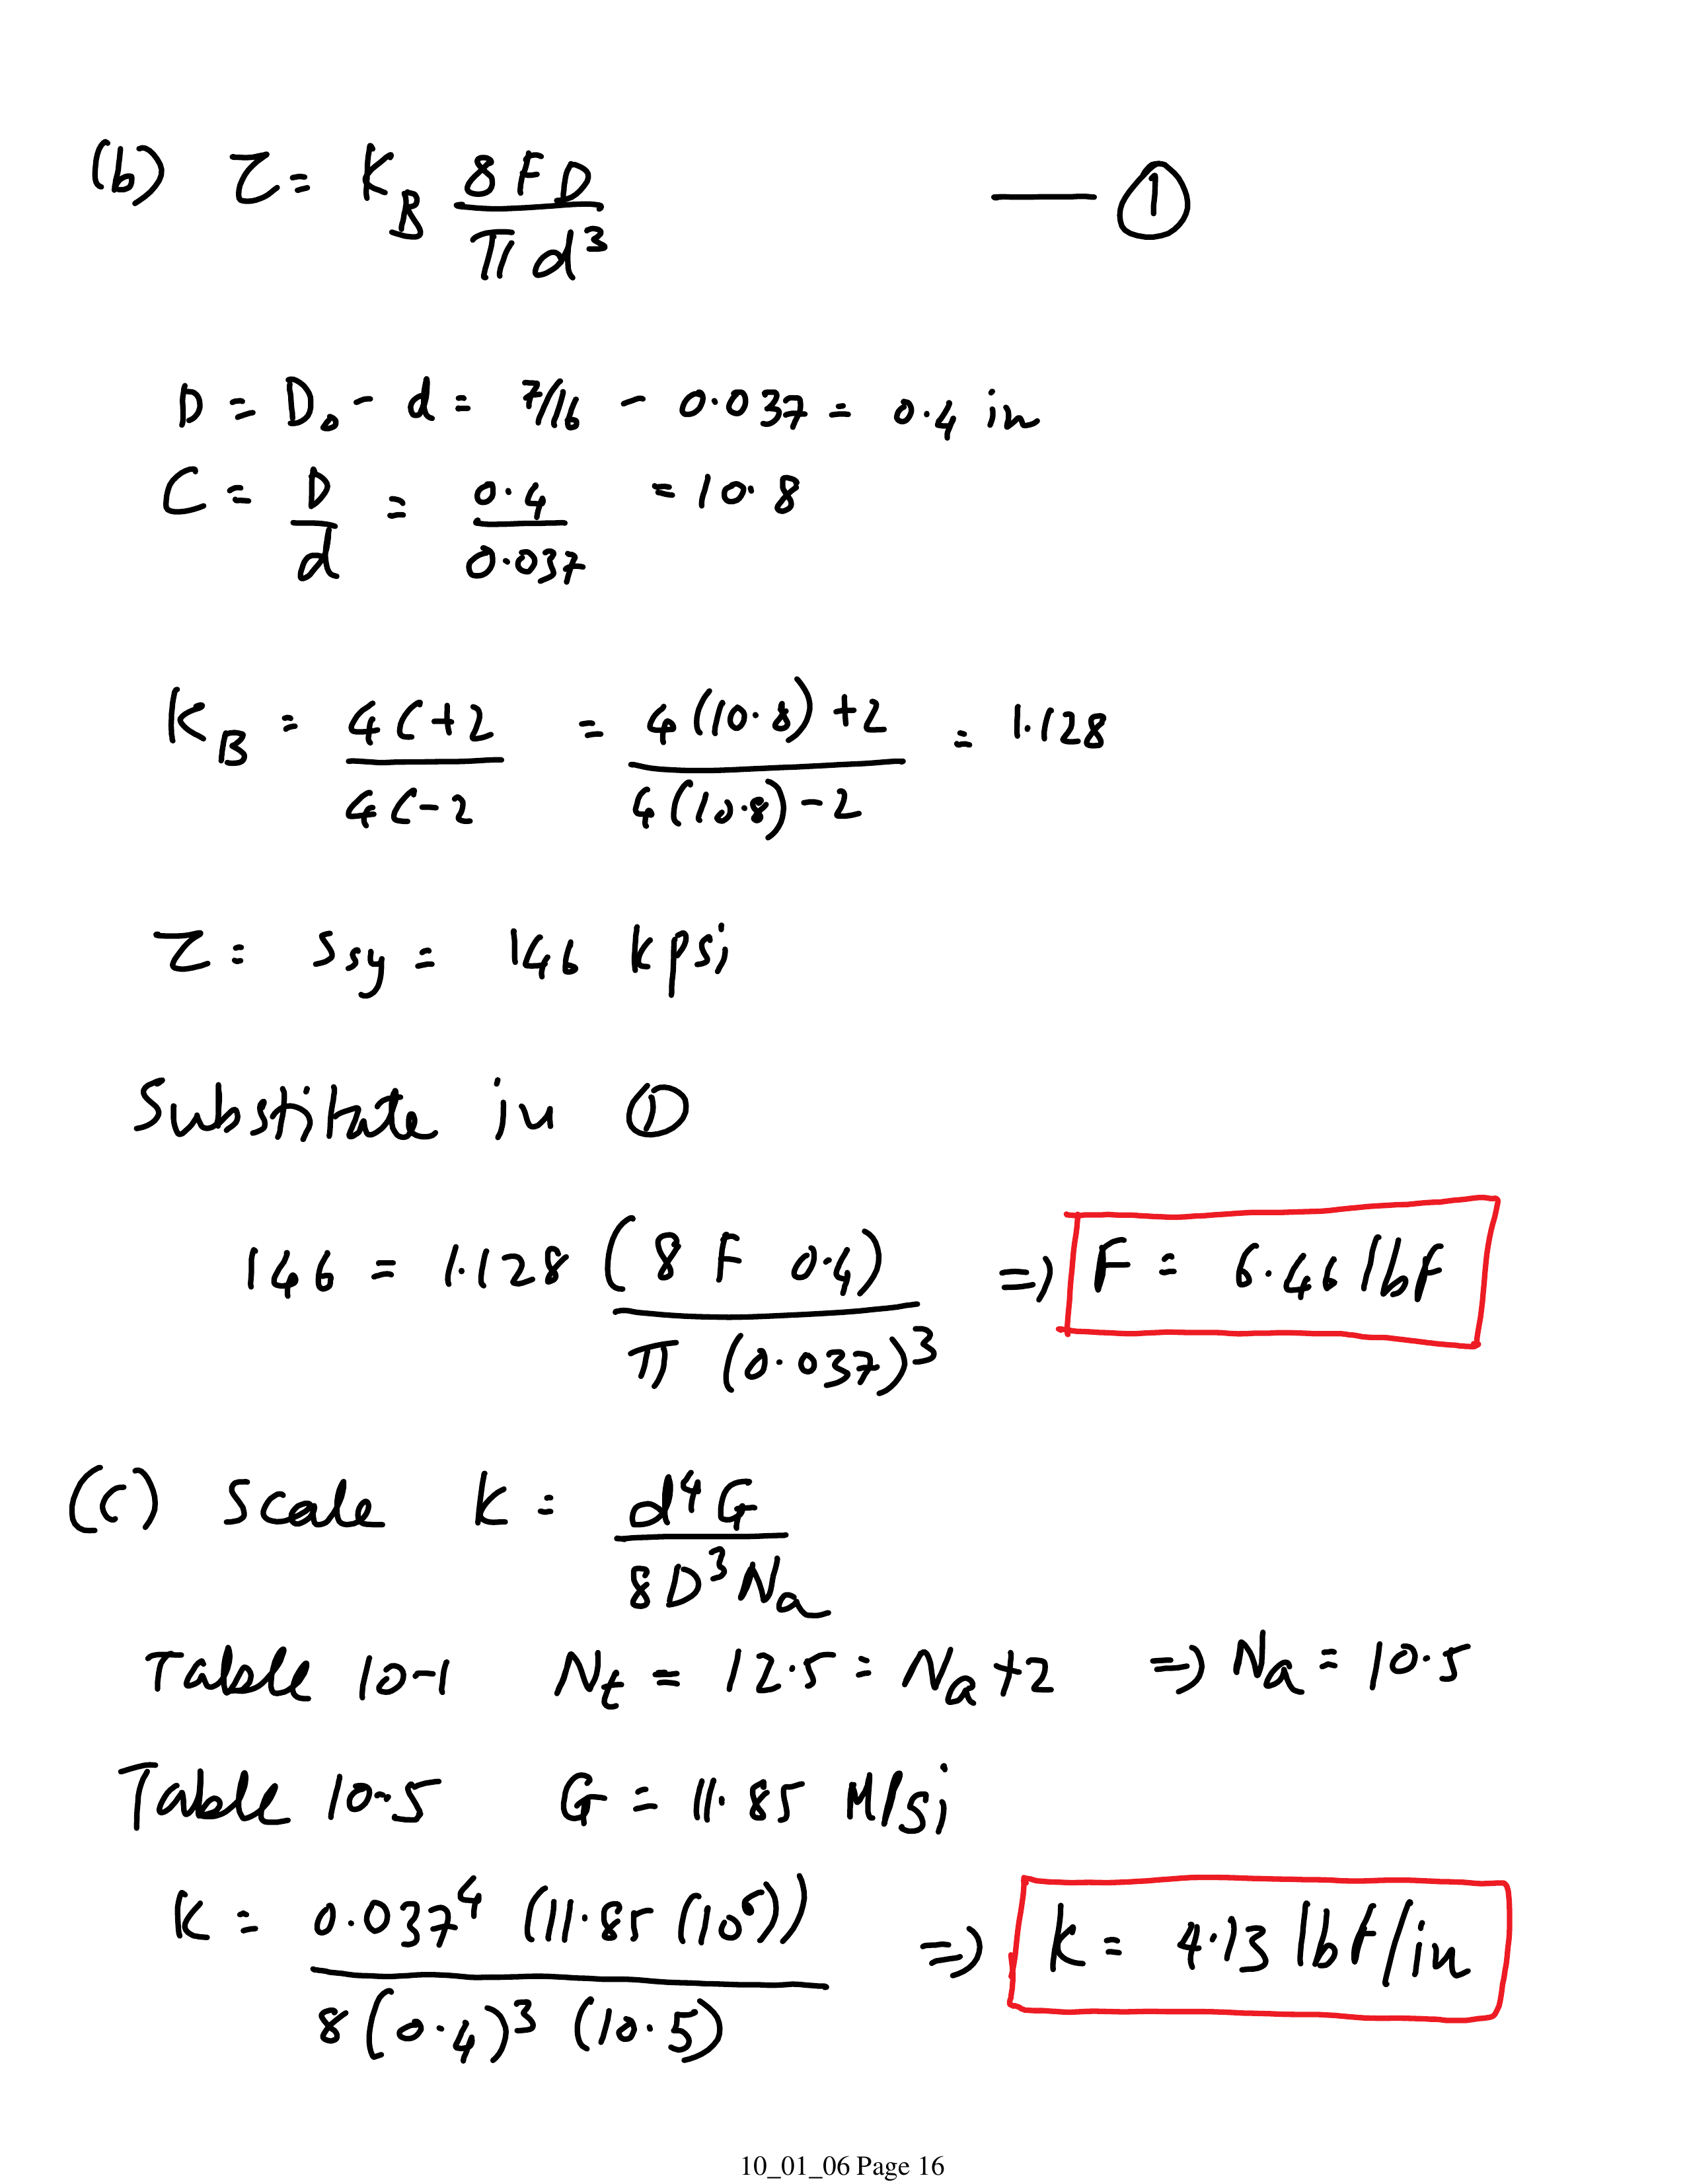 (b) τ = K_B 8FD / πd³ — ①
D = D₀ - d = 7/16 - 0.037 = 0.4 in
C = D/d = 0.4/0.037 = 10.8
K_B = (4C+2)/(4C-2) = (4(10.8)+2)/(4(10.8)-2) = 1.128
τ = Ssy = 146 kpsi
Substitute in ①
146 = 1.128 (8 F 0.4) / π (0.037)³ ⇒ F = 6.46 lbf
(c) Scale k = d⁴G / 8D³Na
Table 10-1 Nt = 12.5 = Na+2 ⇒ Na = 10.5
Table 10-5 G = 11.85 Mpsi
k = 0.037⁴ (11.85(10⁶)) / 8(0.4)³ (10.5) ⇒ k = 4.13 lbf/in
10_01_06 Page 16